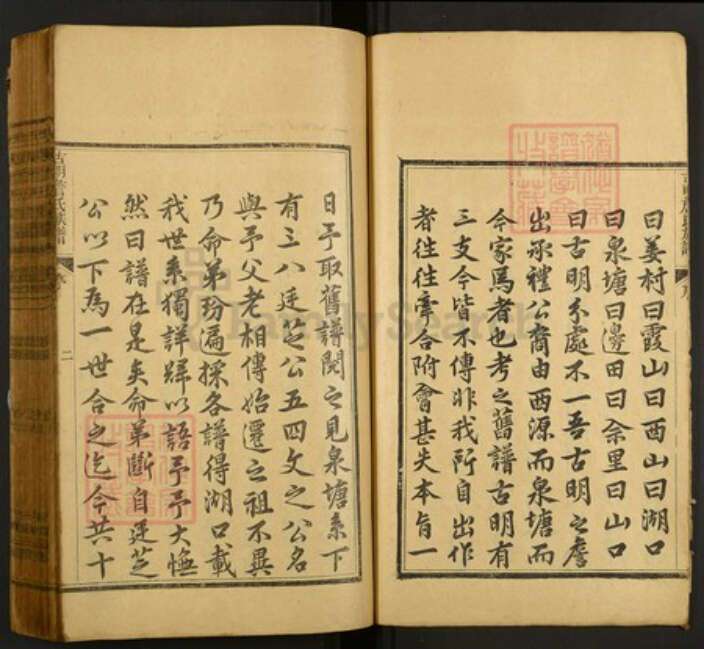 曰姜村曰霞山曰西山曰湖口
曰泉塘曰邊田曰余里曰山口
曰古明分處不一吾古明之詹
出承禮公裔由西源而泉塘而
今家焉者也考之舊譜古明有
三支今皆不傳非我所自出作
者往往牽合附會甚失本旨一
日予取舊譜閱之見泉塘系下
有三八廷芝公五四文之公名
與予父老相傳始遷之祖不異
乃命弟玢遍採各譜得湖口載
我世系獨詳歸以語予予大憮
然曰譜在是矣命弟斷自廷芝
公以下為一世合之迄今共十
二
FamilySearch